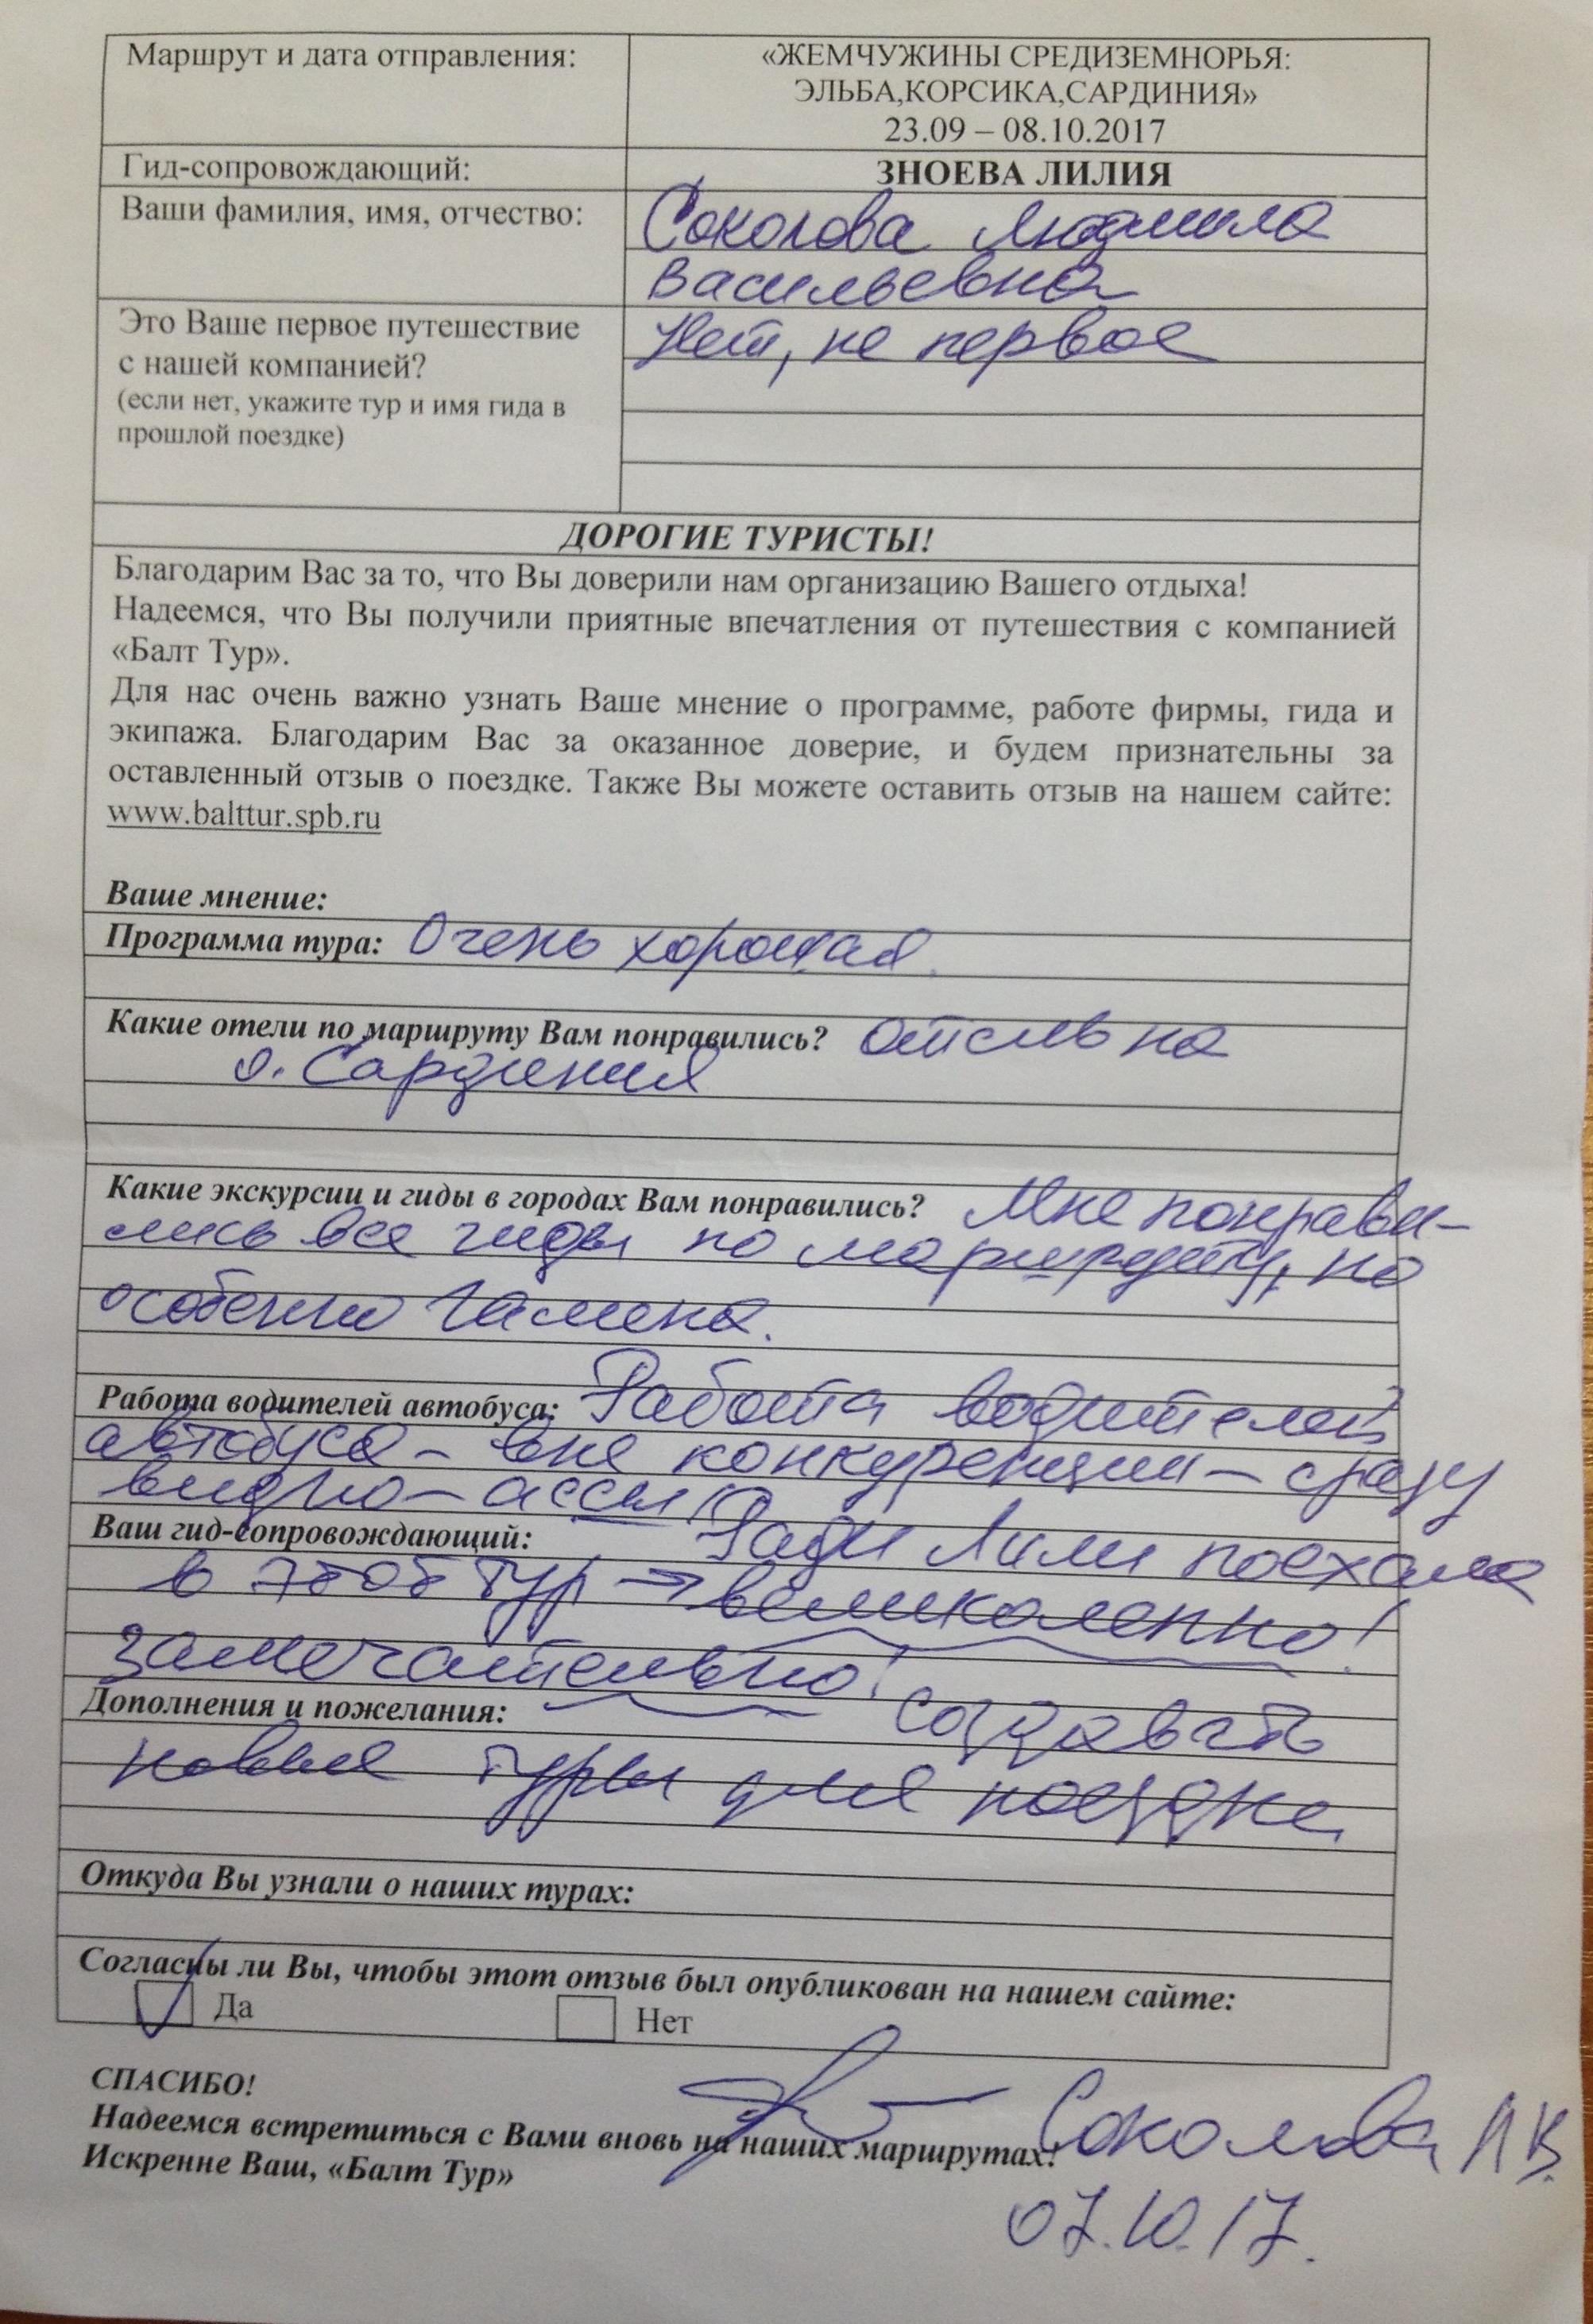 Маршрут и дата отправления:
«ЖЕМЧУЖИНЫ СРЕДИЗЕМНОРЬЯ:
ЭЛЬБА,КОРСИКА,САРДИНИЯ»
23.09 – 08.10.2017
Гид-сопровождающий:
ЗНОЕВА ЛИЛИЯ
Ваши фамилия, имя, отчество:
Соколова Людмила
Васильевна
Это Ваше первое путешествие
с нашей компанией?
(если нет, укажите тур и имя гида в
прошлой поездке)
Нет, не первое
ДОРОГИЕ ТУРИСТЫ!
Благодарим Вас за то, что Вы доверили нам организацию Вашего отдыха!
Надеемся, что Вы получили приятные впечатления от путешествия с компанией
«Балт Тур».
Для нас очень важно узнать Ваше мнение о программе, работе фирмы, гида и
экипажа. Благодарим Вас за оказанное доверие, и будем признательны за
оставленный отзыв о поездке. Также Вы можете оставить отзыв на нашем сайте:
www.balttur.spb.ru
Ваше мнение:
Программа тура: Очень хорошая.
Какие отели по маршруту Вам понравились? отель на
о. Сардиния
Какие экскурсии и гиды в городах Вам понравились? Мне понрави-
лись все гиды по маршруту, но
особенно Галина.
Работа водителей автобуса: Работа водителей
автобуса – вне конкуренции – сразу
видно – ассы!
Ваш гид-сопровождающий: Ради Лили поехала
в этот тур → великолепно!
замечательно!
Дополнения и пожелания: создавать
новые туры для поездке
Откуда Вы узнали о наших турах:
Согласны ли Вы, чтобы этот отзыв был опубликован на нашем сайте:
Да Нет
СПАСИБО!
Надеемся встретиться с Вами вновь на наших маршрутах!
Искренне Ваш, «Балт Тур»
Соколова Л В.
07.10.17.